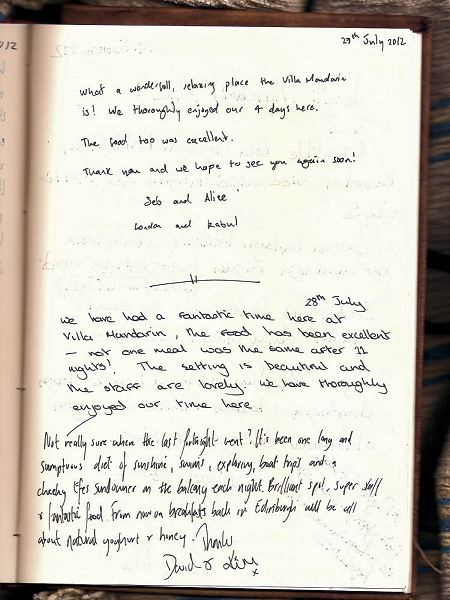 29th July 2012
What a wonderfull, relaxing place the Villa Mandarin
is! We thoroughly enjoyed our 4 days here.
The food too was excellent.
Thank you and we hope to see you again soon!
Seb and Alice
London and Kabul
28th July
We have had a fantastic time here at
Villa Mandarin, the food has been excellent
– not one meal was the same after 11
nights! The setting is beautiful and
the staff are lovely. We have thoroughly
enjoyed our time here
Not really sure where the last fortnight went? It's been one long and
sumptuous diet of sunshine, swims, exploring, boat trips and a
cheeky Efes sundowner on the balcony each night. Brilliant spot, super staff
& fantastic food. From now on breakfasts back in Edinburgh will be all
about natural yoghurt & honey. Thanks
David &